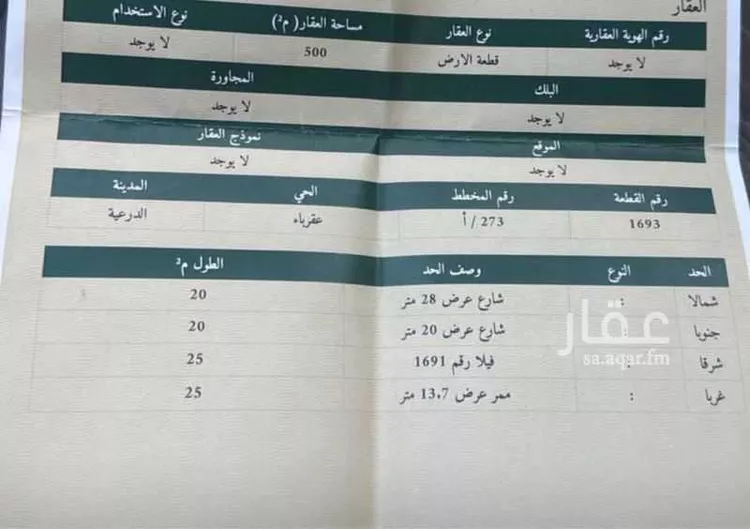 العقار
رقم الهوية العقارية نوع العقار مساحة العقار( م²) نوع الاستخدام
لا يوجد قطعة الارض 500 لا يوجد
البلك المجاورة
لا يوجد لا يوجد
الموقع نموذج العقار
لا يوجد لا يوجد
رقم القطعة رقم المخطط الحي المدينة
1693 273 / أ عقرباء الدرعية
الحد النوع وصف الحد الطول م²
شمالا : شارع عرض 28 متر 20
جنوبا : شارع عرض 20 متر 20
شرقا : فيلا رقم 1691 25
غربا : ممر عرض 13،7 متر 25
عقار
sa.aqar.fm